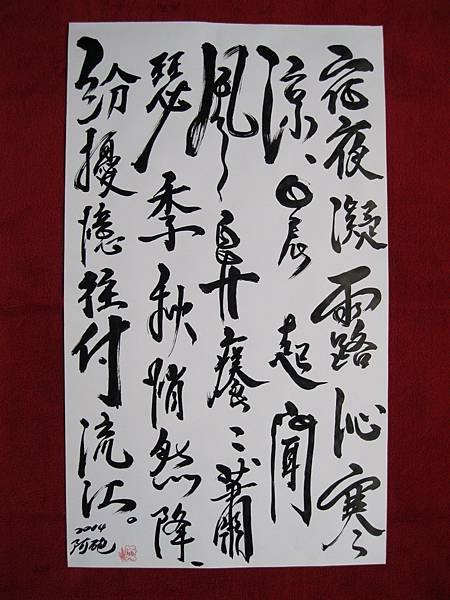 宿夜凝露沁寒
涼、晨起聞
風、鼻癢、蕭
瑟季秋悄然降、
紛擾憶往付流江。
2014
阿砲